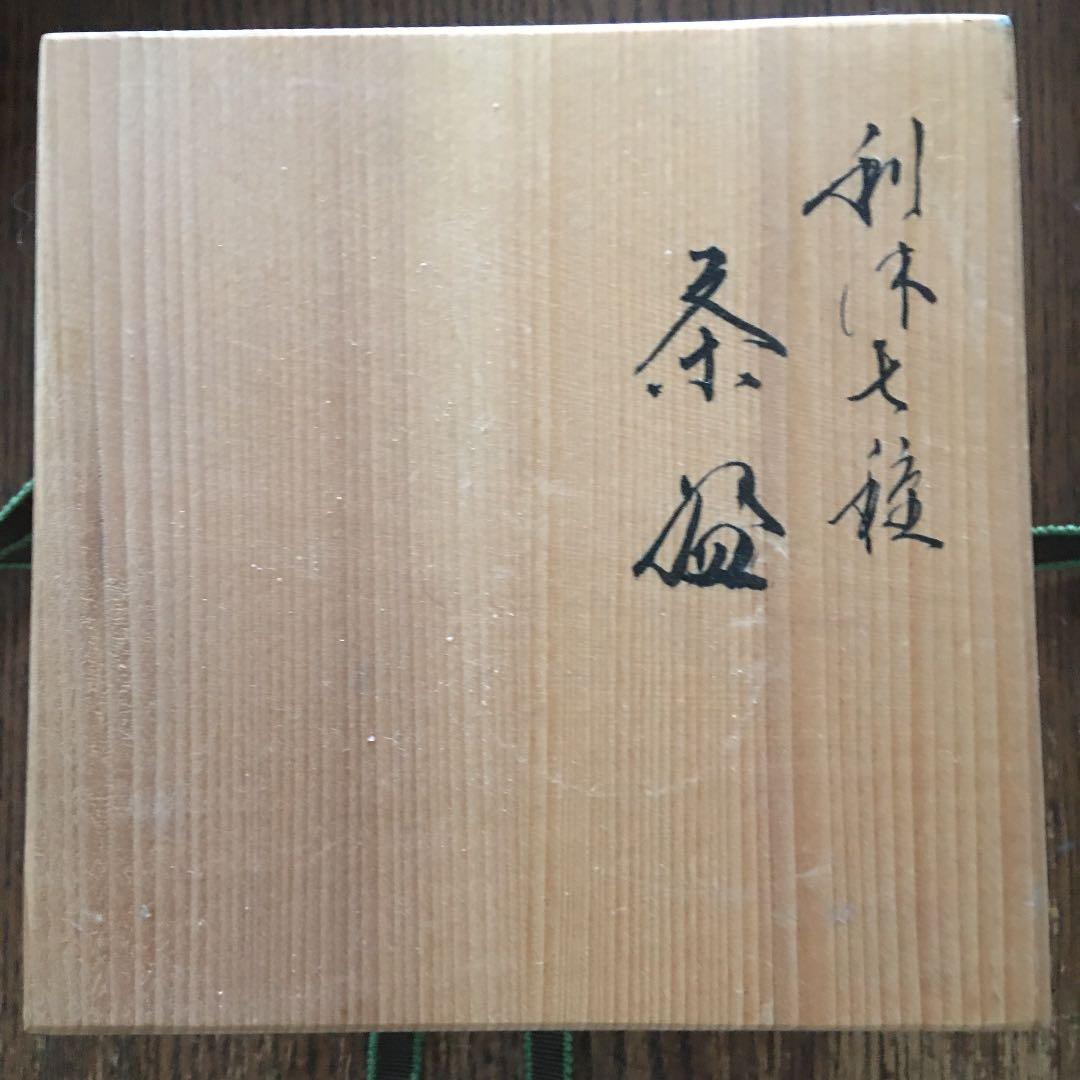 利休七種
茶盌